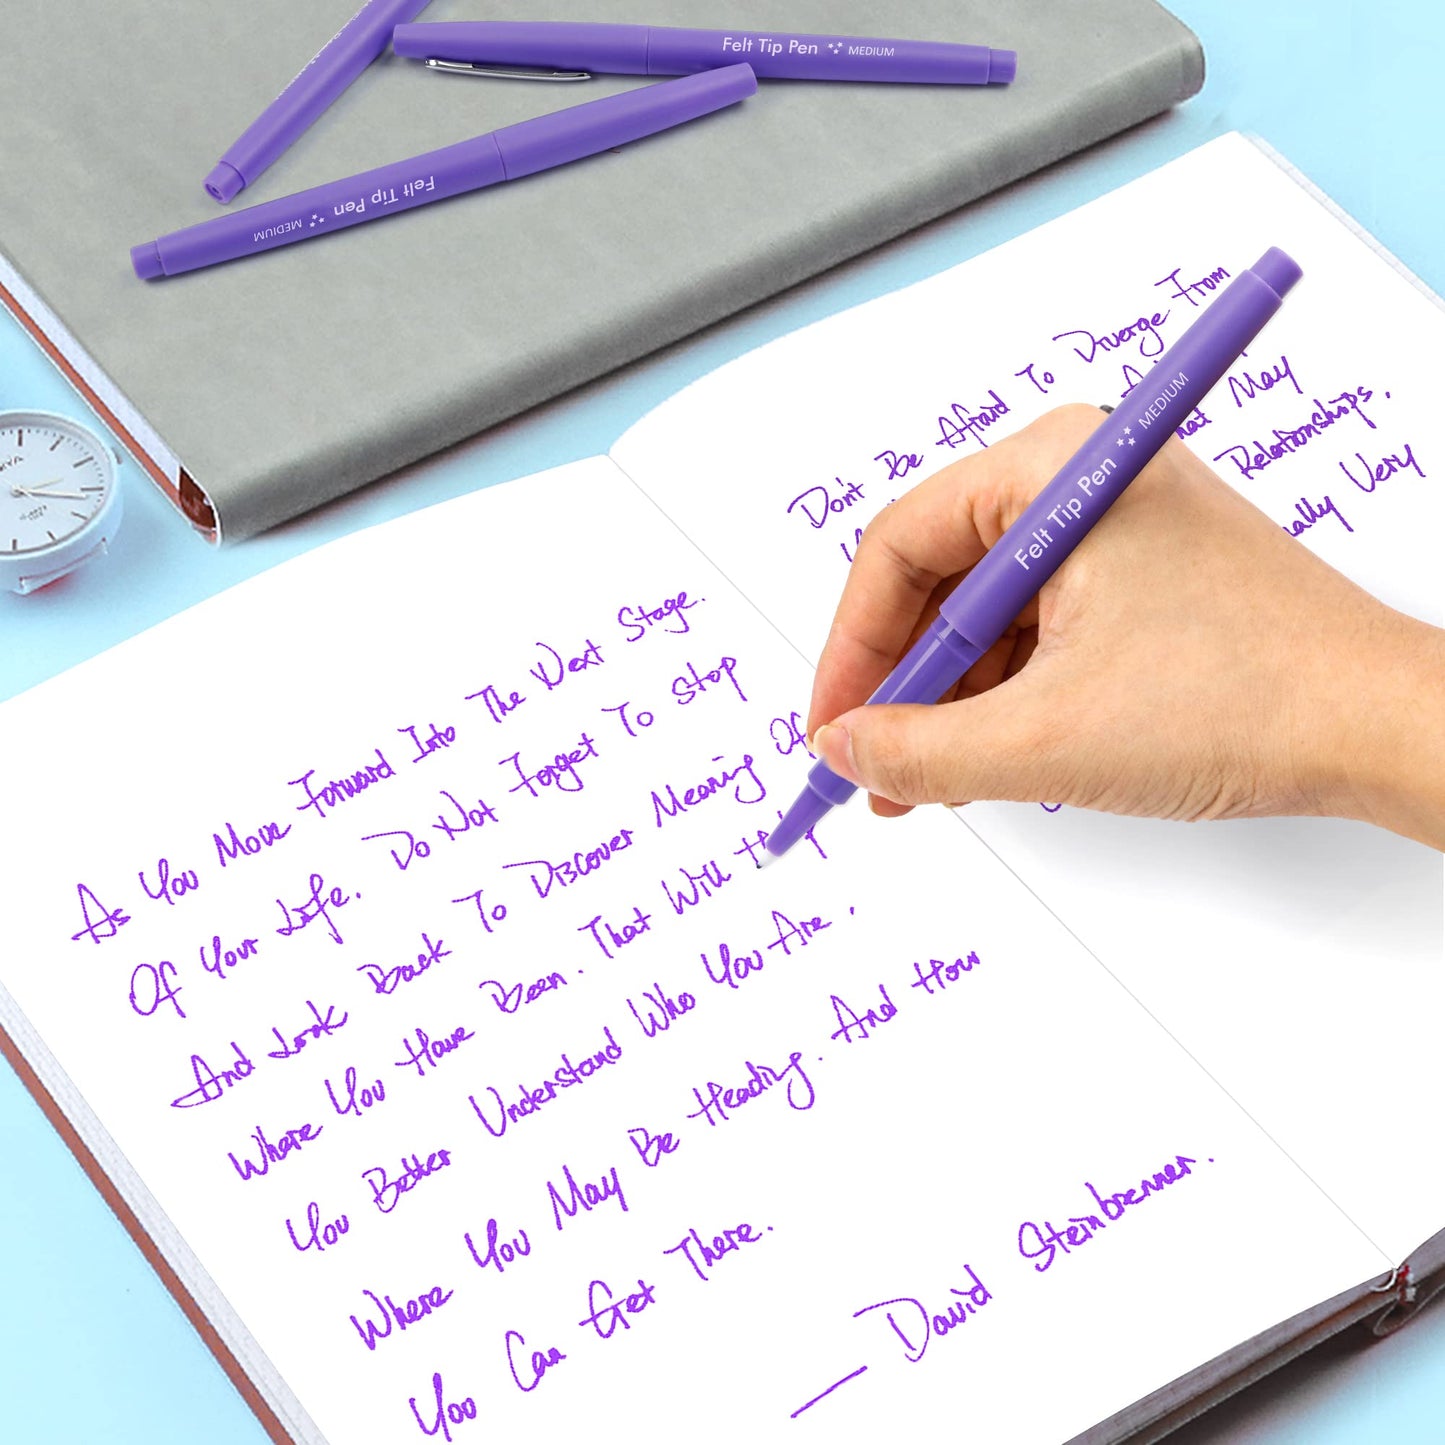 Felt Tip Pen MEDIUM
Felt Tip Pen MEDIUM
Felt Tip Pen MEDIUM
Don't Be Afraid To Diverge From
May
Relationships,
Very
As You Move Forward Into The Next Stage.
Of Your Life. Do Not Forget To Stop
And Look Back To Discover Meaning Of
Where You Have Been. That Will Help
You Better Understand Who You Are.
Where You May Be Heading. And How
You Can Get There.
— David Steinbrenner.